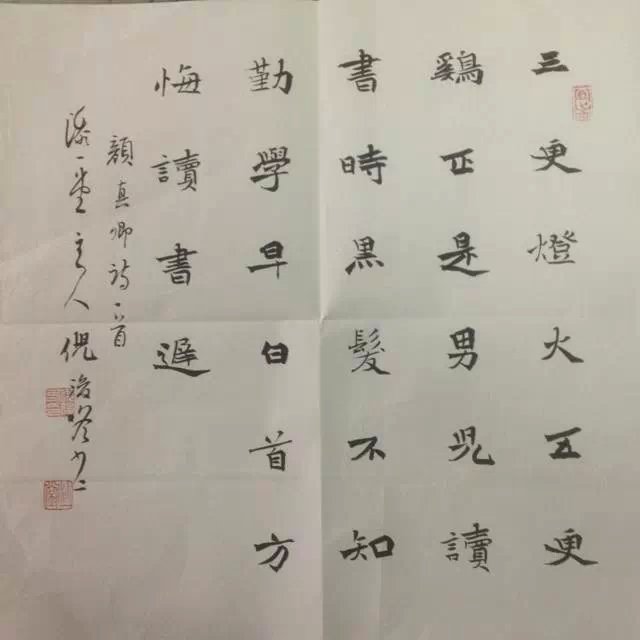 三更燈火五更
鷄正是男兒讀
書時黑髮不知
勤學早白首方
悔讀書遲
顏真卿詩一首
一堂主人倪